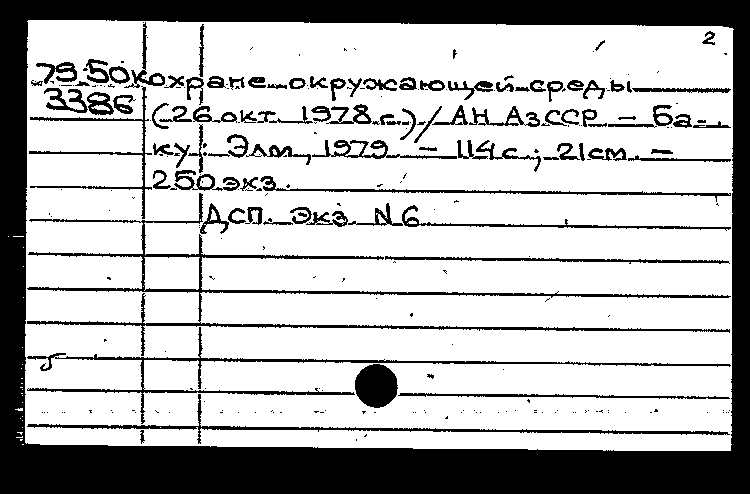 2
79.50к охране окружающей среды
3386 (26 окт. 1978 г.) / АН АзССР – Ба-
ку: Элм, 1979. – 114 с.; 21 см. –
250 экз.
ДСП. Экз. N 6
5